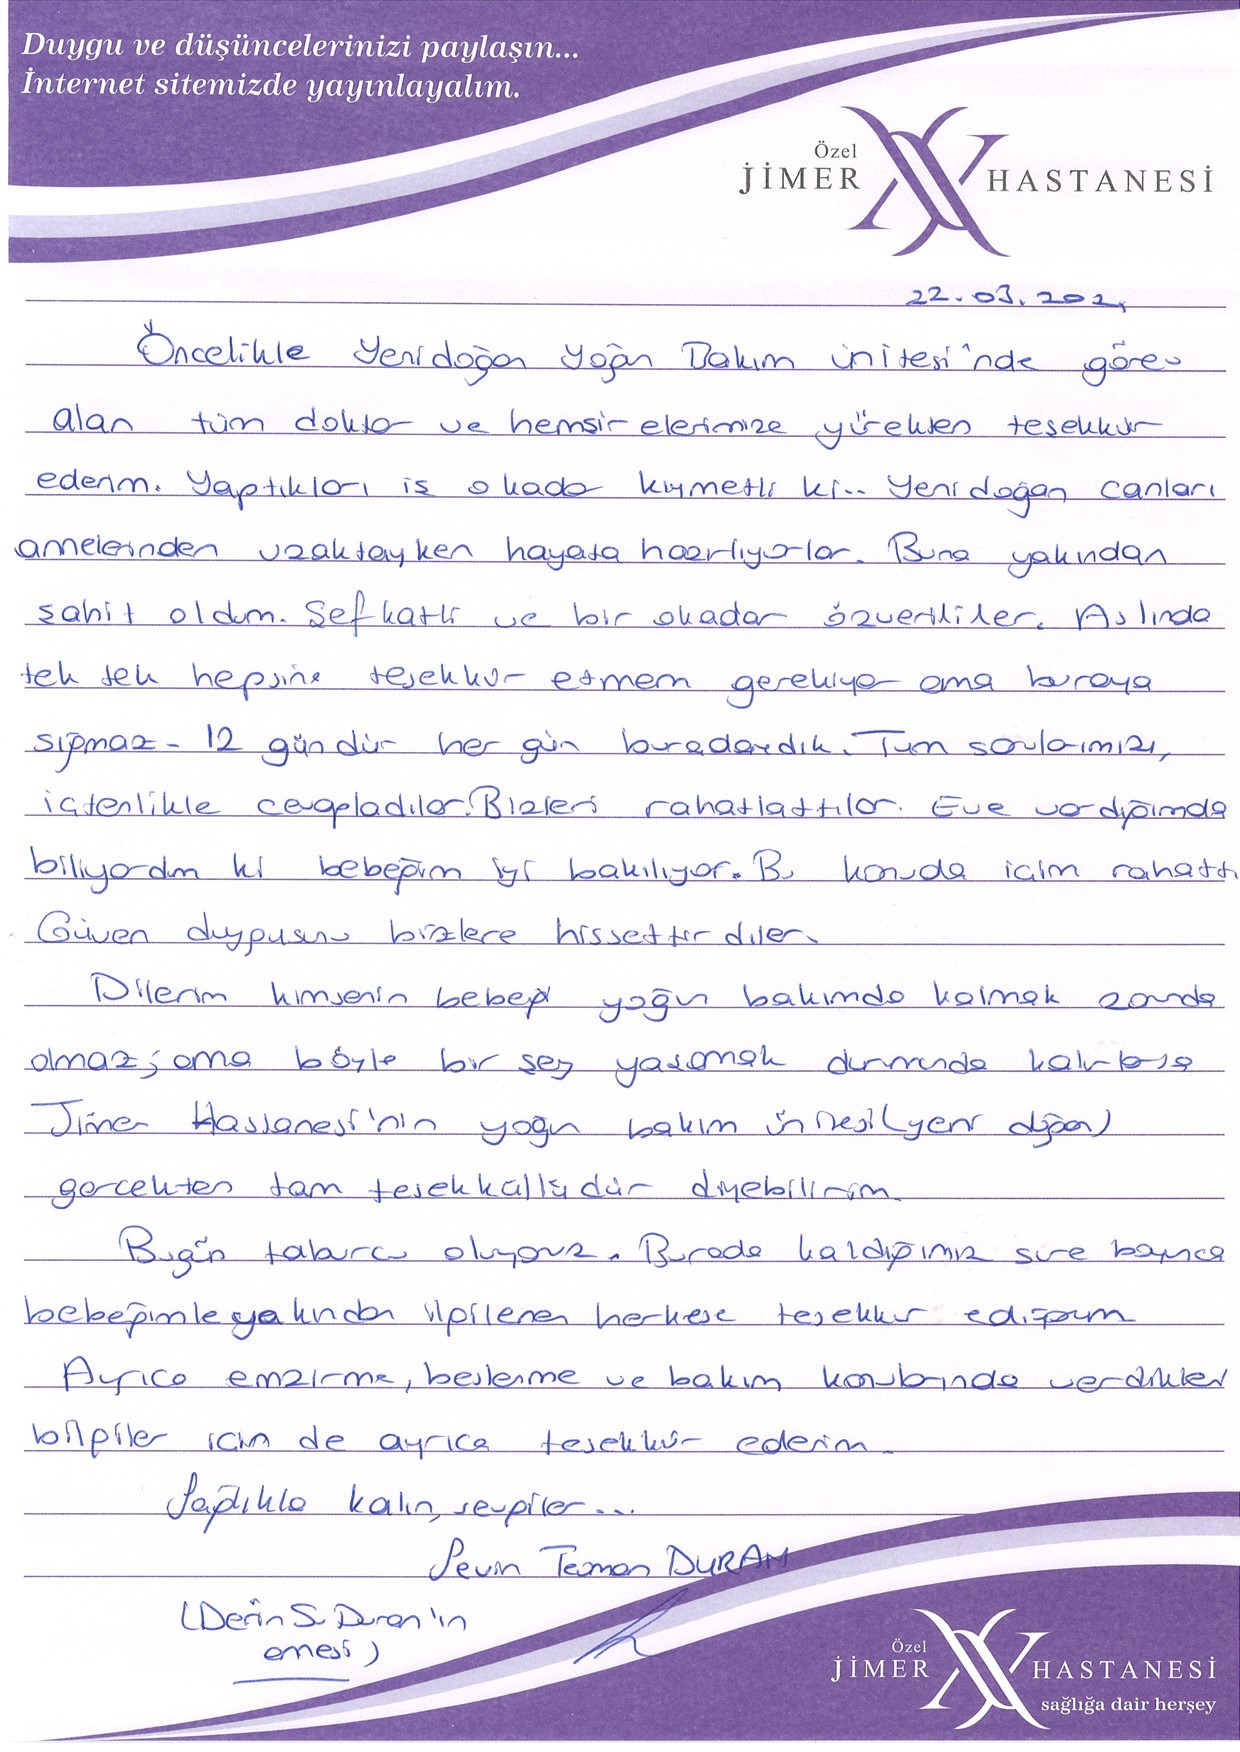 Duygu ve düşüncelerinizi paylaşın...
İnternet sitemizde yayınlayalım.
Özel
JİMER HASTANESİ
22.03.202
Öncelikle Yenidoğan Yoğun Bakım ünitesi'nde görev
alan tüm doktor ve hemşirelerimize yürekten teşekkür
ederim. Yaptıkları iş okadar kıymetli ki.. Yenidoğan canları
annelerinden uzaktayken hayata hazırlıyorlar. Buna yakından
şahit oldum. Şefkatli ve bir okadar özverililer. Aslında
tek tek hepsine teşekkür etmem gerekiyor ama buraya
sığmaz - 12 gündür her gün buradaydık. Tüm sorularımızı,
içtenlikle cevapladılar. Bizleri rahatlattılar. Eve vardığımda
biliyordum ki bebeğim iyi bakılıyor. Bu konuda içim rahattı
Güven duygusunu bizlere hissettirdiler.
Dilerim kimsenin bebeği yoğun bakımda kalmak zorunda
olmaz; ama böyle bir şey yaşamak durumunda kalırlarsa
Jimer Hastanesi'nin yoğun bakım ünitesi (yeni doğan)
gerçekten tam teşekküllüdür diyebilirim.
Bugün taburcu oluyoruz. Burada kaldığımız süre boyunca
bebeğimle yakından ilgilenen herkese teşekkür ediyorum
Ayrıca emzirme, beslenme ve bakım konularında verdikleri
bilgiler için de ayrıca teşekkür ederim.
Sağlıkla kalın, sevgiler...
Sevin Teoman DURAN
(Derin S. Duran'ın
annesi)
Özel
JİMER HASTANESİ
sağlığa dair herşey